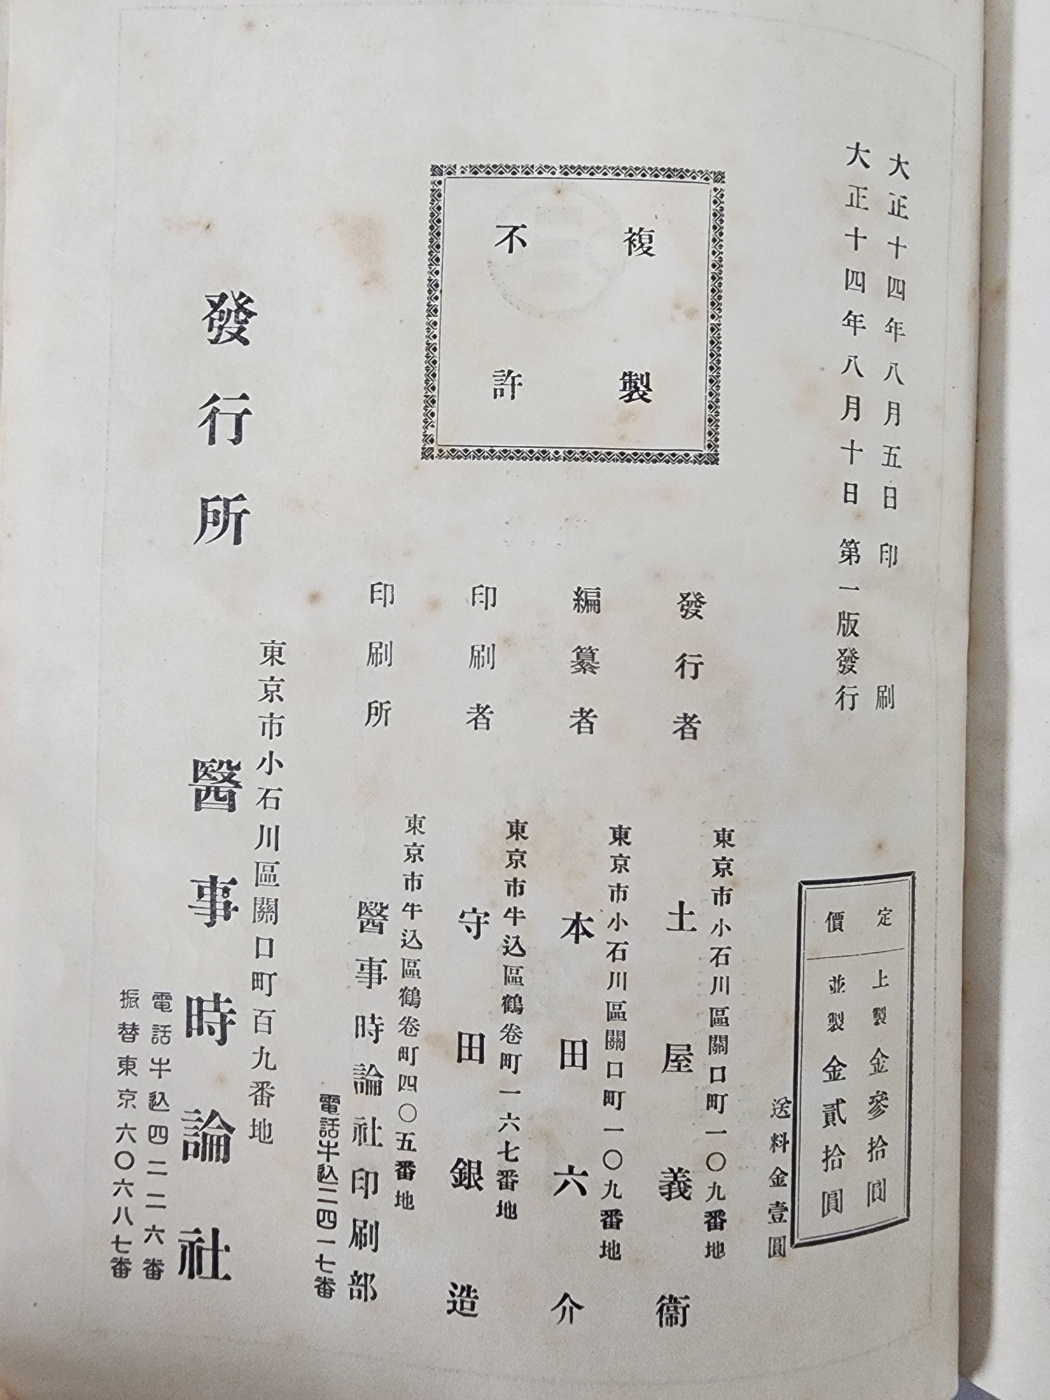 大正十四年八月五日印刷
大正十四年八月十日第一版發行
定價
上製金參拾圓
並製金貳拾圓
送料金壹圓
複製
不許
發行者
東京市小石川區關口町一〇九番地
土屋義衞
編纂者
東京市小石川區關口町一〇九番地
本田六介
印刷者
東京市牛込區鶴卷町一六七番地
守田銀造
印刷所
東京市牛込區鶴卷町四〇五番地
醫事時論社印刷部
電話牛込二四一七番
發行所
東京市小石川區關口町百九番地
醫事時論社
電話牛込四二二六番
振替東京六〇六八七番